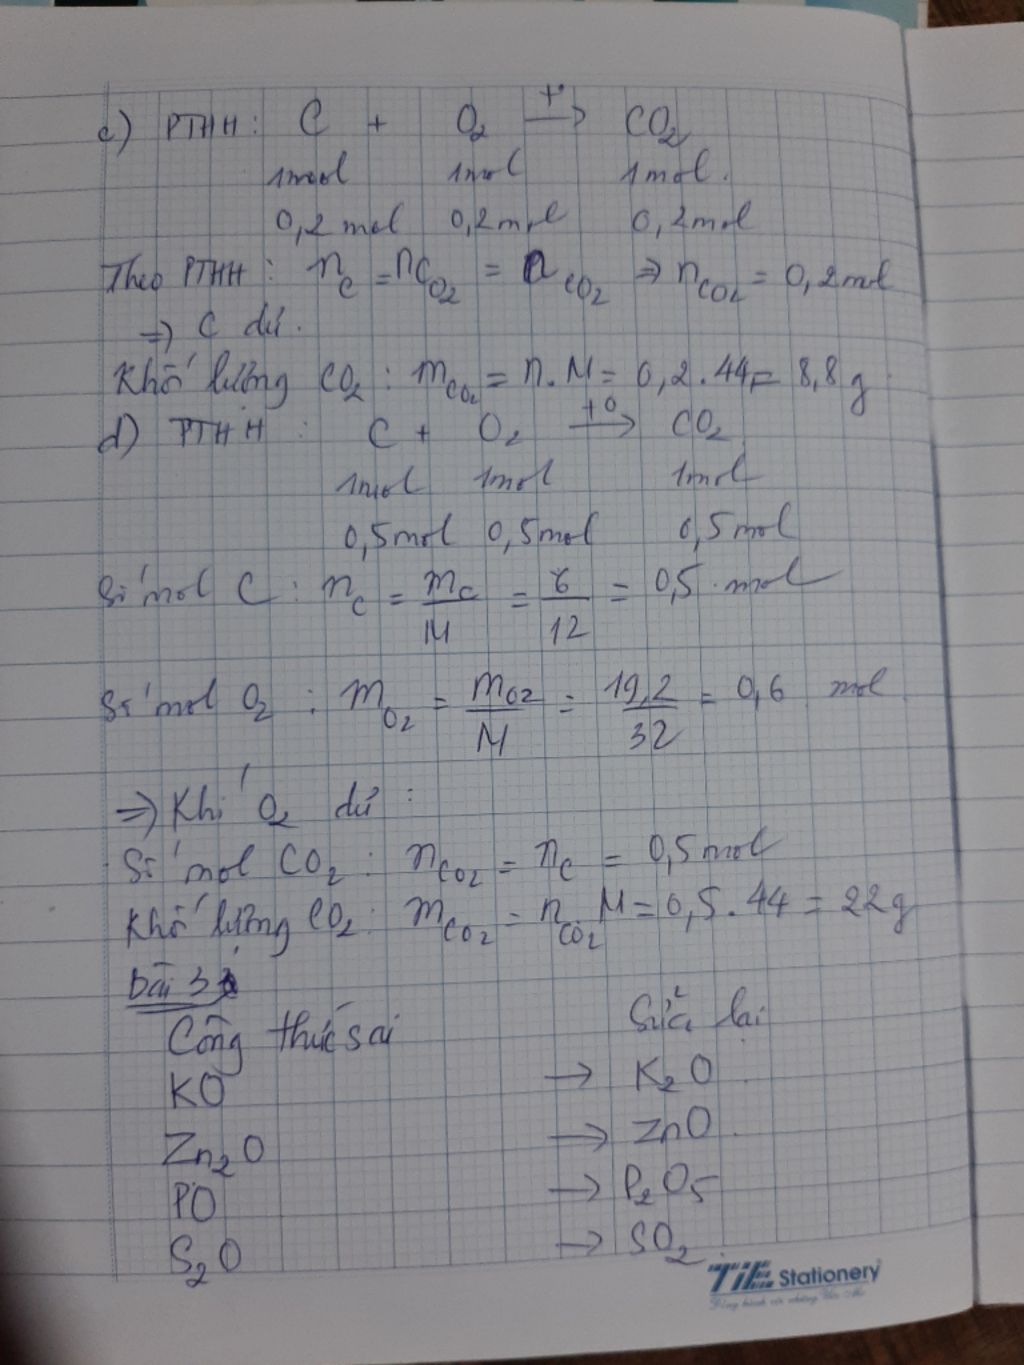 c) PTHH: C + O₂ t° → CO₂
1mol 1mol 1mol.
0,2mol 0,2mol 0,2mol
Theo PTHH: nC = nCO₂ = nCO₂ ⇒ nCO₂ = 0,2mol
⇒ C dư.
Khối lượng CO₂: mCO₂ = n.M = 0,2.44 = 8,8g
d) PTHH: C + O₂ t° → CO₂
1mol 1mol 1mol
0,5mol 0,5mol 0,5mol
Số mol C: nC = mC/M = 6/12 = 0,5 mol
Số mol O₂: mO₂ = mO2/M = 19,2/32 = 0,6 mol
⇒ Khí O₂ dư:
Số mol CO₂: nCO₂ = nC = 0,5mol
Khối lượng CO₂: mCO₂ = nCO₂.M = 0,5.44 = 22g
Bài 3
Công thức sai Sửa lại
KO → K₂O
Zn₂O → ZnO
PO → P₂O₅
S₂O → SO₂
TiE Stationery